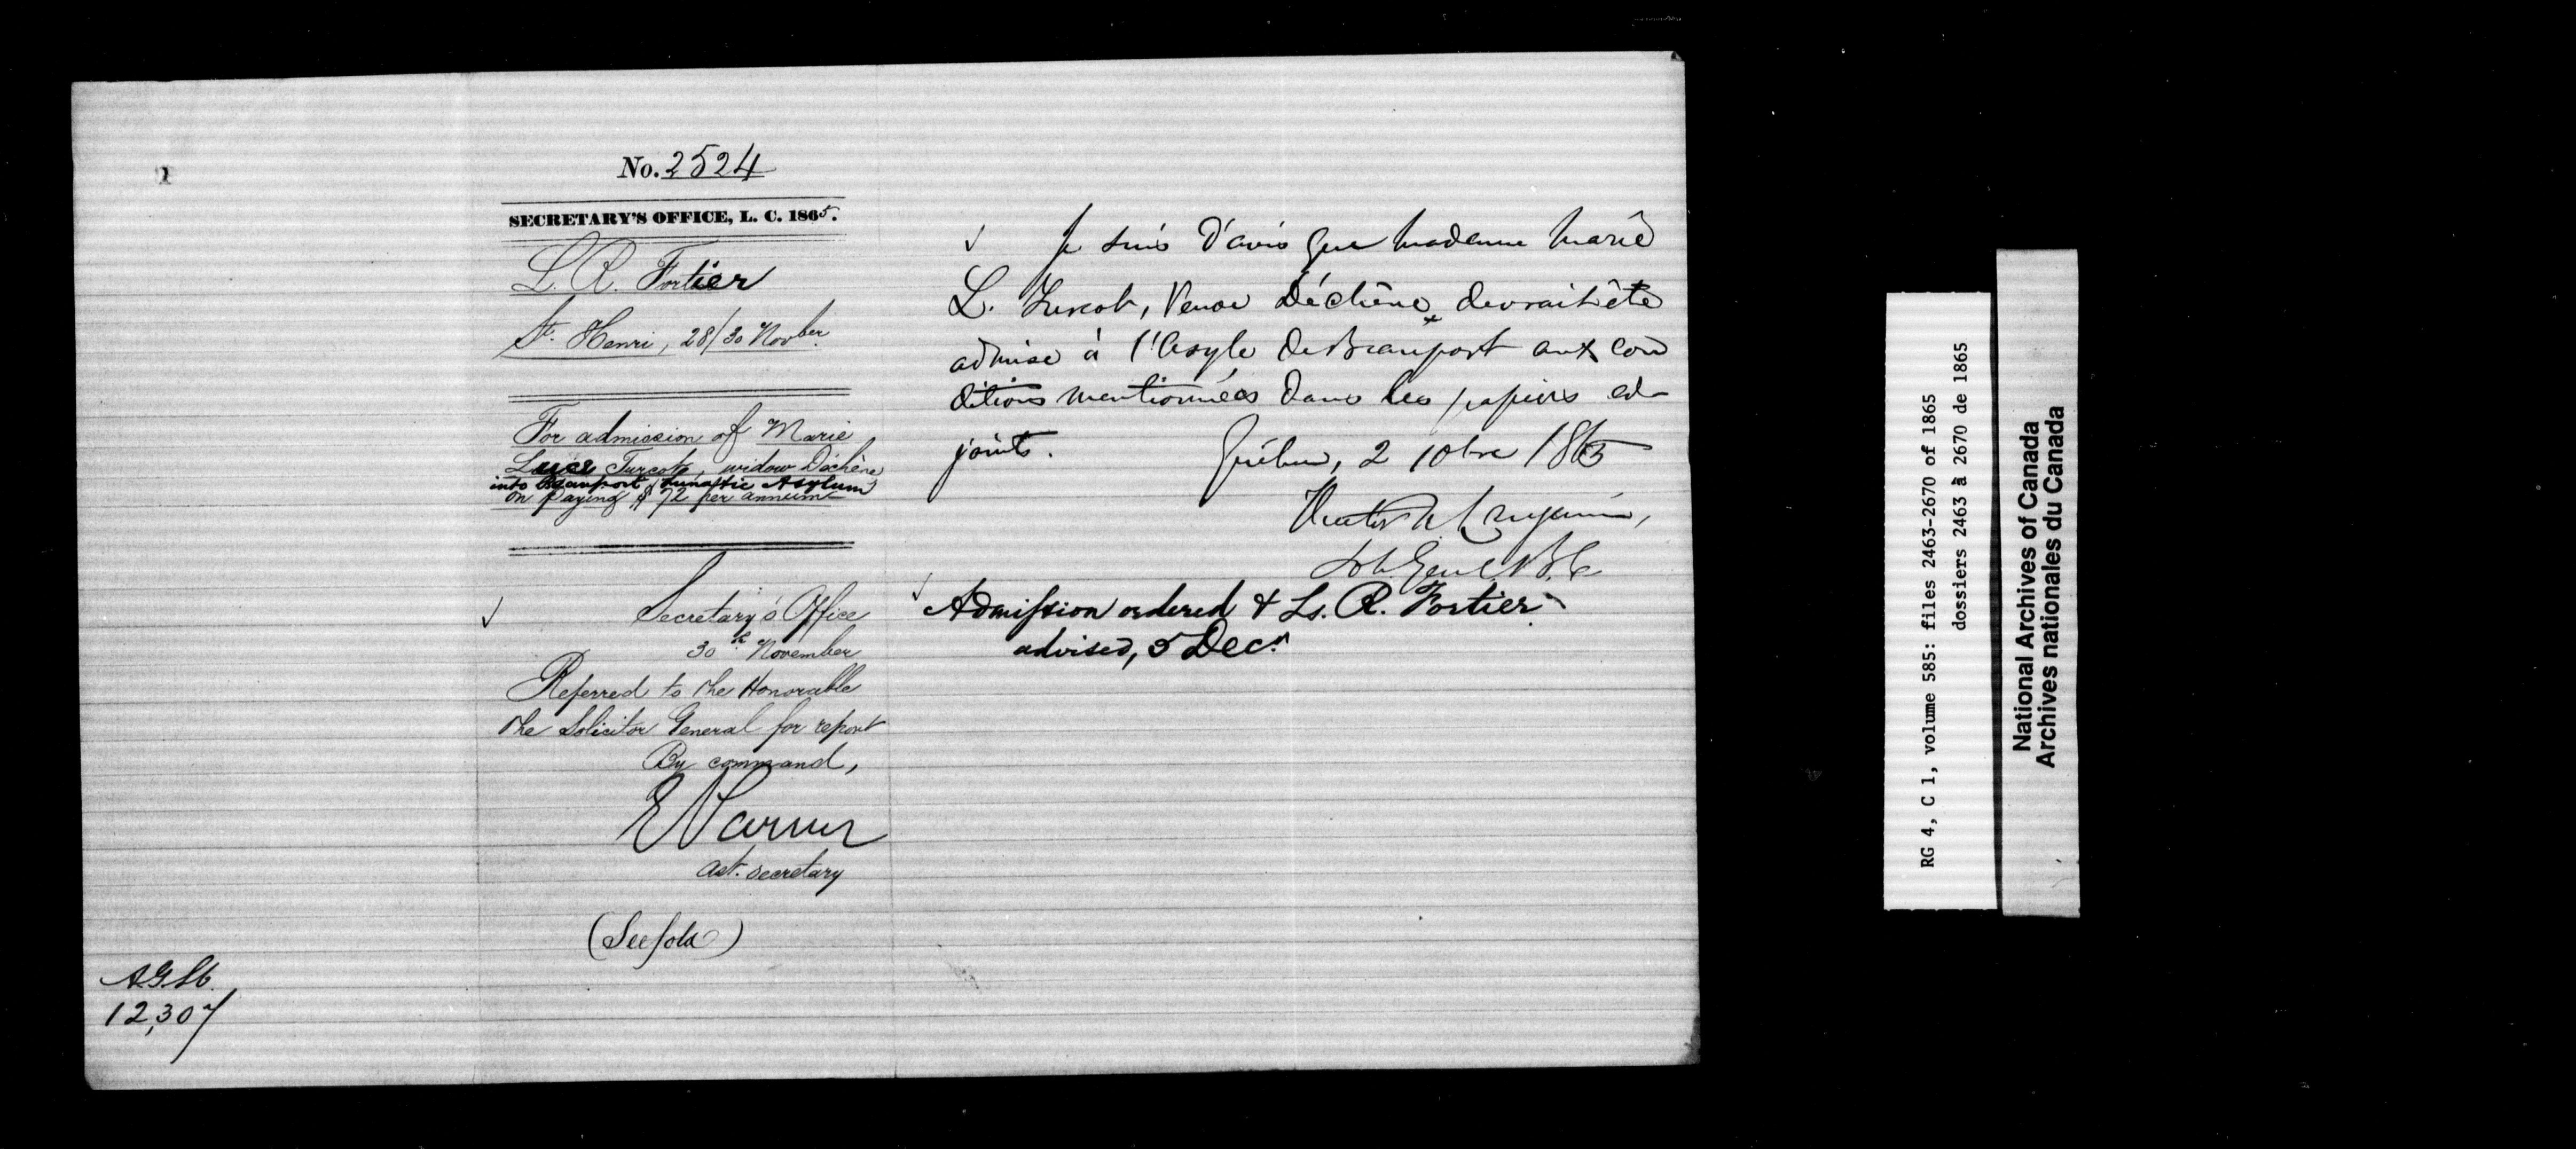 No. 2524
SECRETARY'S OFFICE, L. C. 1865.
L. R. Fortier
St. Henri, 28/30 Novber.
For admission of Marie
Luce Turcot, widow Déchêne
into Beauport Lunatic Asylum
on paying $ 72 per annum
Secretary's Office
30th November
Referred to the Honorable
the Solicitor General for report
By command,
ast. secretary
(See fold)
12,307
Je suis d'avis que madame Marie
L. Turcot, Veuve Déchêne, devrait être
admise à l'Asyle de Beauport aux con
ditions mentionnées dans les papiers ad-
joints.
Québec, 2 10bre 1865
Sol. Genl. B. C.
Admission ordered & Ls. R. Fortier
advised, 5 Decr.
RG 4, C 1, volume 585: files 2463-2670 of 1865
dossiers 2463 à 2670 de 1865
National Archives of Canada
Archives nationales du Canada